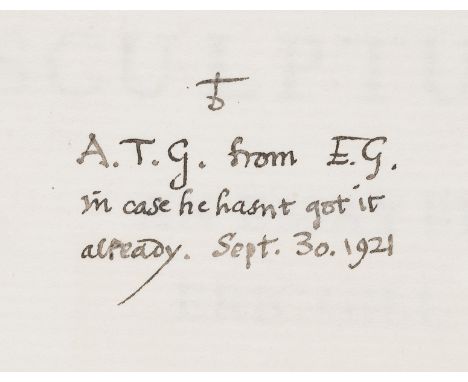 to
A. T. G. from E.G.
in case he hasnt got it
already. Sept. 30. 1921